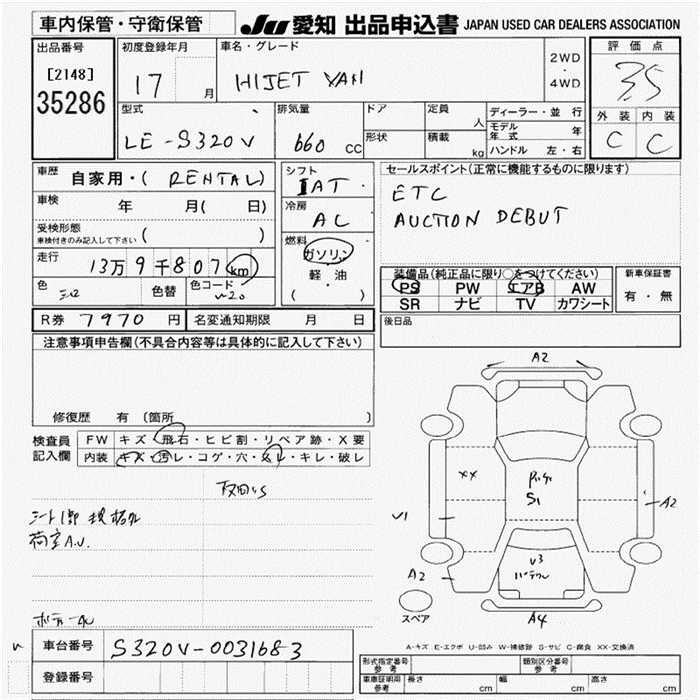 車内保管・守衛保管
JU 愛知 出品申込書 JAPAN USED CAR DEALERS ASSOCIATION
出品番号
[2148]
35286
初度登録年月
17 月
車名・グレード
HIJET VAN
2WD
・
4WD
評価点
3.5
外装 内装
C C
型式
LE-S320V
排気量
660 CC
ドア
形状
定員
人
積載
kg
ディーラー・並行
モデル年式 年
ハンドル 左・右
車歴
自家用・( RENTAL)
車検 年 月( 日)
受検形態
車検付きのみ記入して下さい ( )
走行
13万9千807 km
色
色替
色コード
W20
シフト
IAT
冷房
AC
燃料
ガソリン
軽・油
( )
セールスポイント(正常に機能するものに限ります)
ETC
AUCTION DEBUT
装備品(純正品に限り○をつけてください)
PS PW エアB AW
SR ナビ TV カワシート
新車保証書
有・無
R券 7970 円
名変通知期限 月 日
後日品
注意事項申告欄(不具合内容等は具体的に記入して下さい)
修復歴 有 〔箇所 〕
検査員
記入欄
FW キズ・飛石・ヒビ割・リペア跡・X要
内装 キズ・汚レ・コゲ・穴・スレ・キレ・破レ
A2
XX
S1
V1
A2
V3
A2
A4
スペア
A-キズ E-エクボ U-凹み W-補修跡 S-サビ C-腐食 XX-交換済
車台番号 S320V-0031683
登録番号
形式指定番号
参考
類別区分番号
参考
車庫証明用
参考
長さ cm 幅 cm 高さ cm